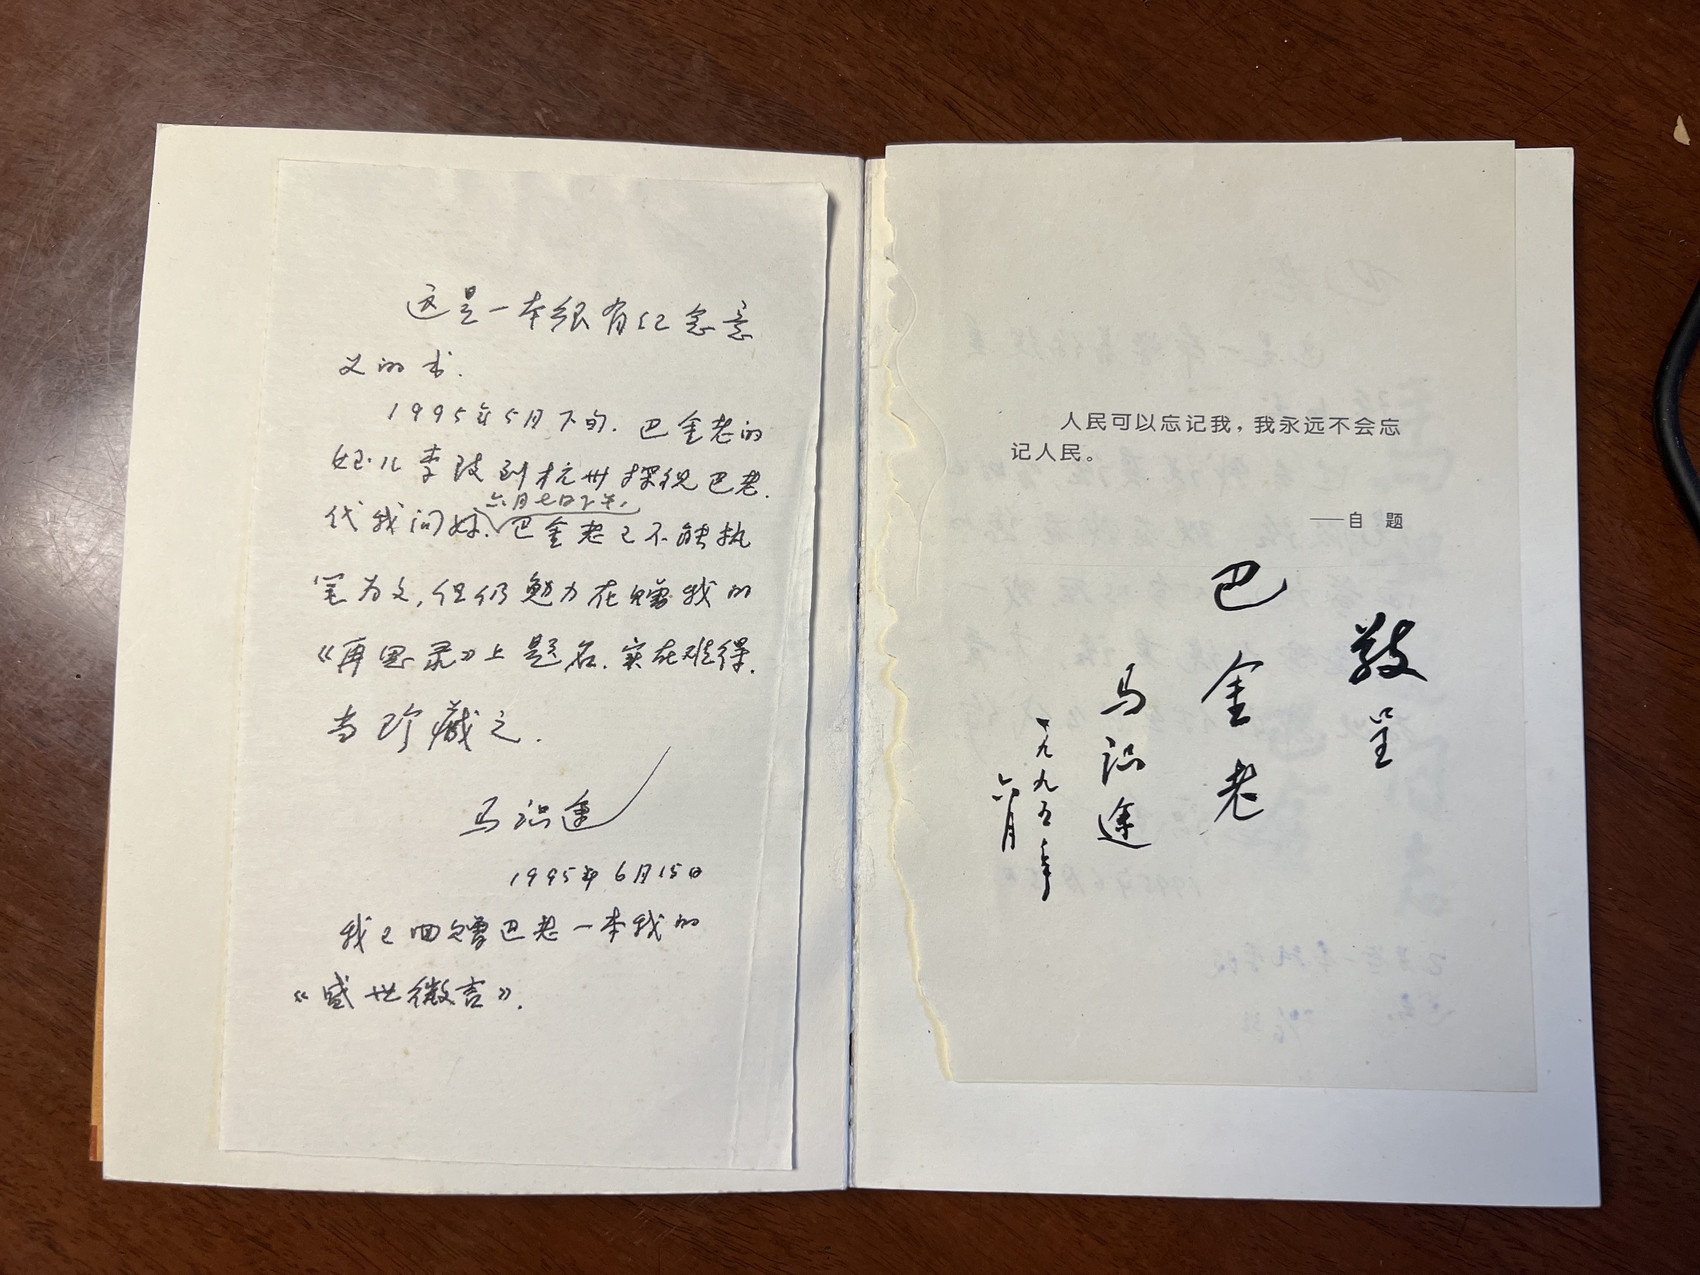 这是一本很有纪念意
义的书.
1995年5月下旬.巴金老的
侄儿李致到杭州探视巴老.
代我问好.
六月七日上午,
巴金老已不能执
笔为文,但仍勉力在赠我的
《再思录》上题名.实在难得.
当珍藏之.
马识途
1995年6月15日
我已回赠巴老一本我的
《盛世微言》.
人民可以忘记我，我永远不会忘
记人民。
——自 题
敬呈
巴金老
马识途
一九九五年
六月